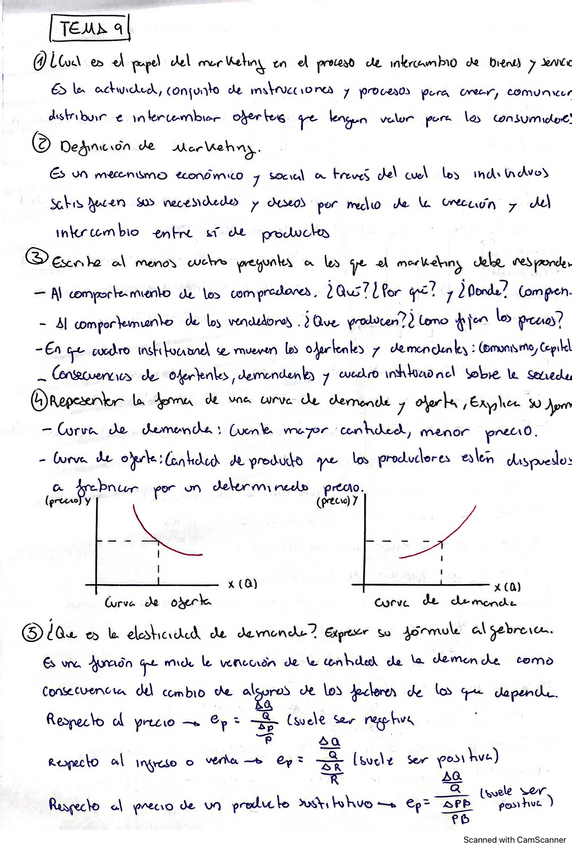 TEMA 9
① ¿Cual es el papel del marketing en el proceso de intercambio de bienes y servicio
Es la actividad, conjunto de instrucciones y procesos para crear, comunicar,
distribuir e intercambiar ofertas que tengan valor para los consumidores
② Definición de Marketing.
Es un mecanismo económico y social a través del cual los individuos
satisfacen sus necesidades y deseos por medio de la creación y del
intercambio entre sí de productos
③ Escribe al menos cuatro preguntas a las que el marketing debe responder
- Al comportamiento de los compradores. ¿Qué? ¿Por qué? y ¿Donde? Compran.
- Al comportamiento de los vendedores. ¿Que producen? ¿Como fijan los precios?
- En que cuadro institucional se mueven los ofertentes y demandantes: Comunismo, Capital
- Consecuencias de ofertentes, demandantes y cuadro institucional sobre la sociedad
④ Representar la forma de una curva de demanda y oferta, Explica su form
- Curva de demanda: Cuanta mayor cantidad, menor precio.
- Curva de oferta: Cantidad de producto que los productores están dispuestos
a fabricar por un determinado precio.
(precio) Y
X (Q)
Curva de oferta
(precio) Y
X (Q)
Curva de demanda
⑤ ¿Que es la elasticidad de demanda? Expresar su fórmula algebraica.
Es una función que mide la variación de la cantidad de la demanda como
consecuencia del cambio de algunos de los factores de los que depende.
Respecto al precio → ep = ΔQ/Q / Δp/p (suele ser negativa
Respecto al ingreso o venta → ep = ΔQ/Q / ΔR/R (suele ser positiva)
Respecto al precio de un producto sustitutivo → ep = ΔQ/Q / ΔPB/PB (suele ser positiva)
Scanned with CamScanner